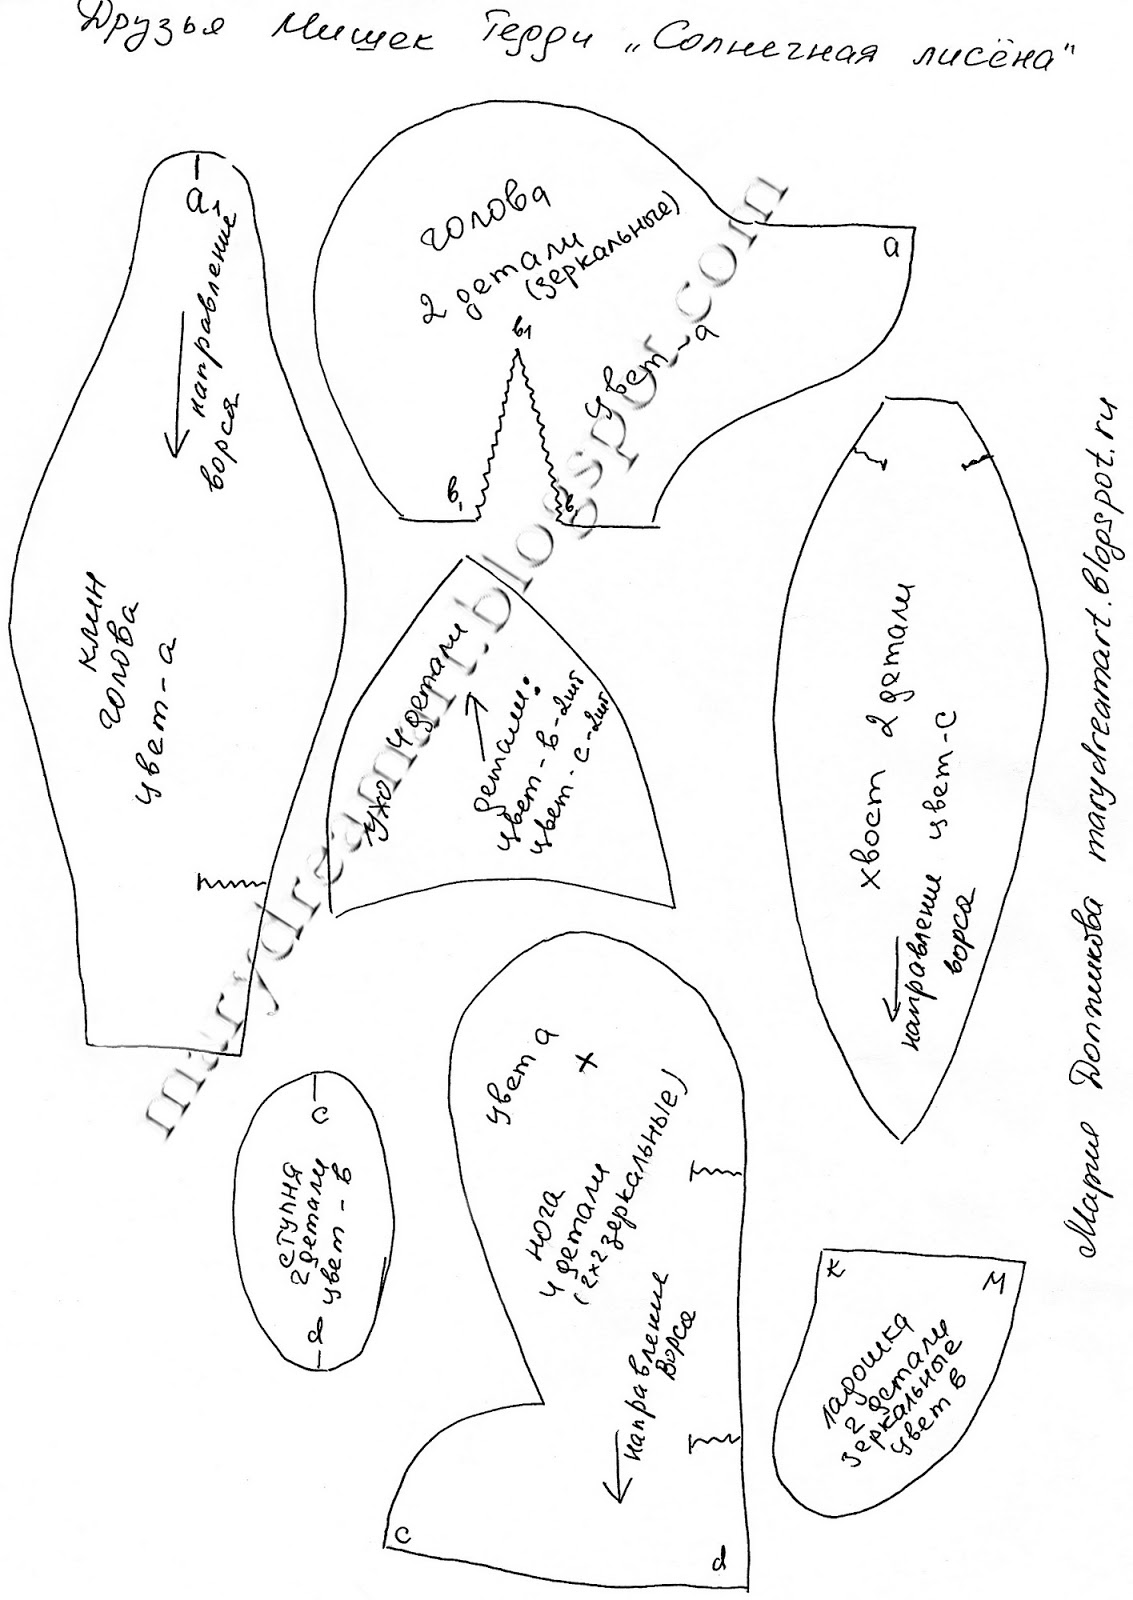 Друзья Мишек Тедди „Солнечная лисёна"
а1
направление
ворса
клин
голова
цвет-а
голова
2 детали
(зеркальные)
цвет-а
а
в1
в
в
ухо 4 детали
детали:
цвет-в-2шт
цвет-с-2шт
хвост 2 детали
цвет-с
направление
ворса
с
ступня
2 детали
цвет-в
d
цвет а
нога
4 детали
(2×2 зеркальные)
направление
ворса
с
d
к
м
ладошка
2 детали
зеркальные
цвет в
marydreamart.blogspot.com
Мария marydreamart.blogspot.ru